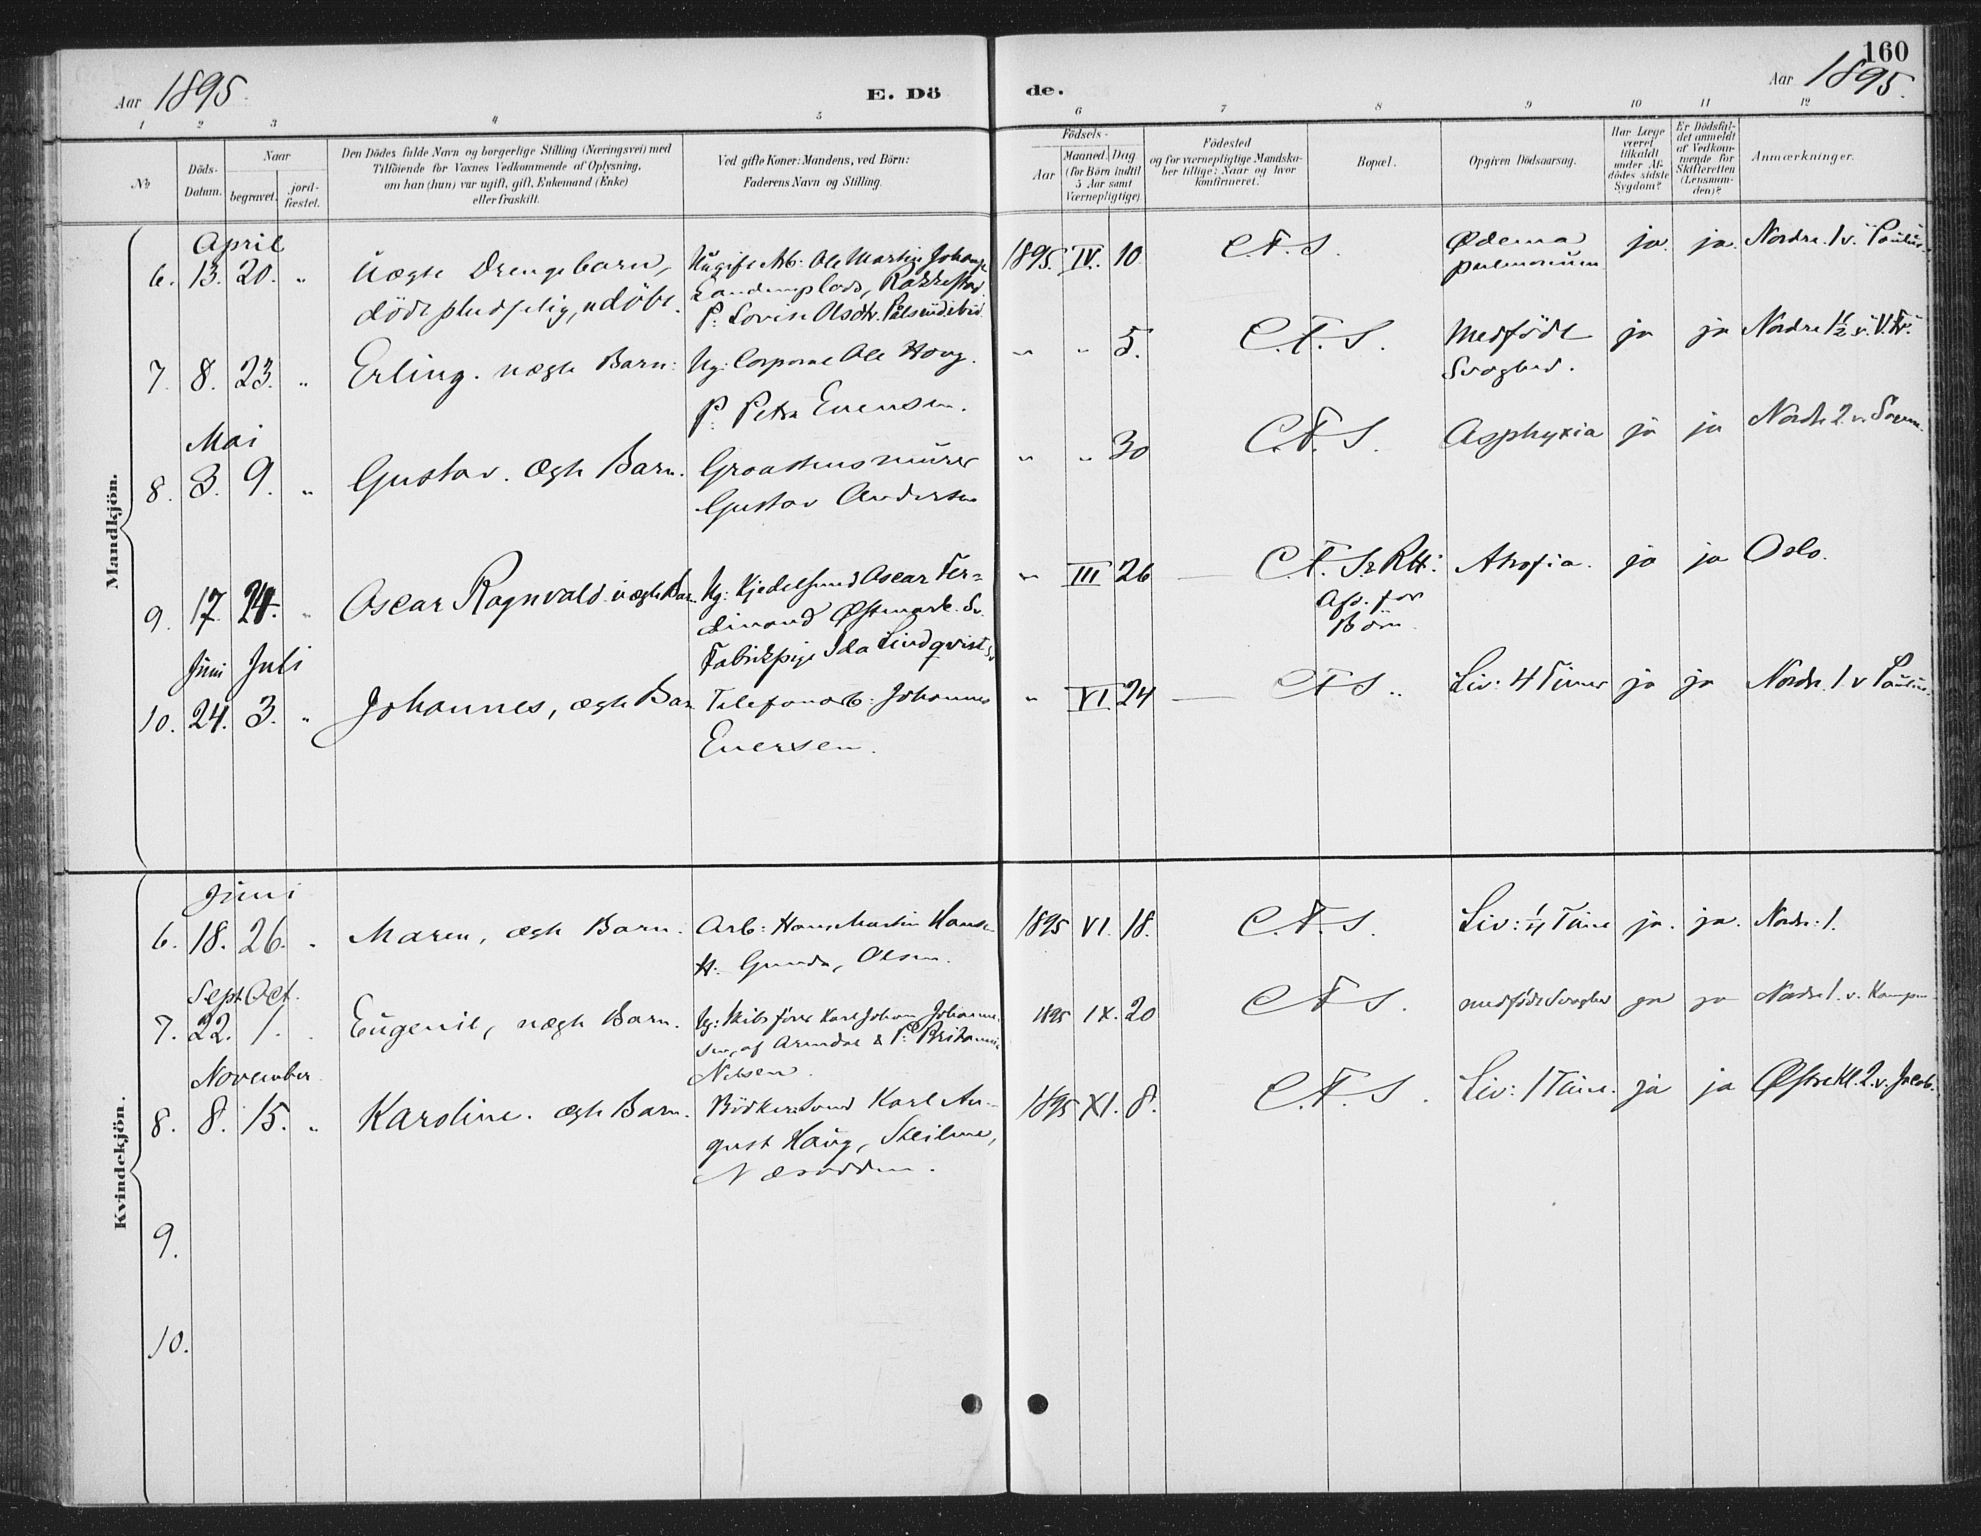 160
Aar 1895.
E. Dö
de.
Aar 1895.
1 2 3 4 5 6 7 8 9 10 11 12
No
Döds-
Datum.
Naar
begravet.
jord-
fæstet.
Den Dödes fulde Navn og borgerlige Stilling (Næringsvei) med
Tilföiende for Voxnes Vedkommende af Oplysning,
om han (hun) var ugift, gift, Enkemand (Enke)
eller fraskilt.
Ved gifte Koner: Mandens, ved Börn:
Faderens Navn og Stilling.
Födsels-
Aar
Maaned. Dag
(for Börn indtil
5 Aar samt
Værnepligtige)
Födested
og for værnepligtige Mandska-
ber tillige: Naar og hvor
konfirmeret.
Bopæl.
Opgiven Dödsaarsag.
Har Læge
været
tilkaldt
under Af-
dödes sidste
Sygdom?
Er Dödsfal-
det anmeldt
af Vedkom-
mende for
Skifteretten
(Lensman-
den)?
Anmærkninger.
Mandkjön.
April
6. 13. 20. " Uægte Drengebarn,
döde pludselig, udöbt.
Ugift Arb: Ole Martin
Rakkestad.
P: Lovise Olsdtr.
1895. IV. 10 C. F. S. Ødema
pulmonum
ja. ja. Nordre. 1 v. Paulus.
7. 8. 23. " Erling. uægte Barn. Ug: Corporal Ole Houg.
P: Petra Evensen.
" " 5. C. F. S. Medfödt
Svaghed.
ja ja Nordre 1½ v.
Mai
8. 3. 9. " Gustav. Ægte Barn. Graastensmurer
Gustav Andersen
" " 30 C. F. S. Asphyxia ja ja Nordre 2 v.
9. 17. 24. " Oscar Ragnvald. uægte Barn Ug: Kjedelsmed Oscar Fer-
dinand Østmark. Sv.
Fabrikpige Ida Lindqvist
" III 26 C. F. S. Rtt:
Afd. for
Börn.
Atrofia. ja ja Oslo.
Juni Juli
10. 24. 3. " Johannes, ægte Barn Telefonarb: Johannes
Evensen.
" VI 24 C F S. Liv: 4 Timer ja ja Nordre. 1 v Paulus.
Kvindekjön.
Juni
6. 18. 26. " Maren, ægte Barn. Arb: Hans Martin Hansen
H: Gunda, Olsen.
1895 VI. 18. C. F. S. Liv: ¼ Time ja. ja. Nordre: 1.
Sept. Oct.
7. 22. 1. Eugenie, uægte Barn. Ug: Skibsförer Karl Johan Johanne-
sen, af Arendal & P:
Nilsen.
1895 IX. 20 C F S. medfödt Svaghed ja ja Nordre 1. v. Kampen
November
8. 8. 15. " Karoline. ægte Barn. Bödkersvend Karl Au-
gust Haug, Steilene,
Næsodden.
1895 XI. 8. C. F. S. Liv: 1 Time. ja ja Østre Kl. 2. v. Jacob.
9.
10.